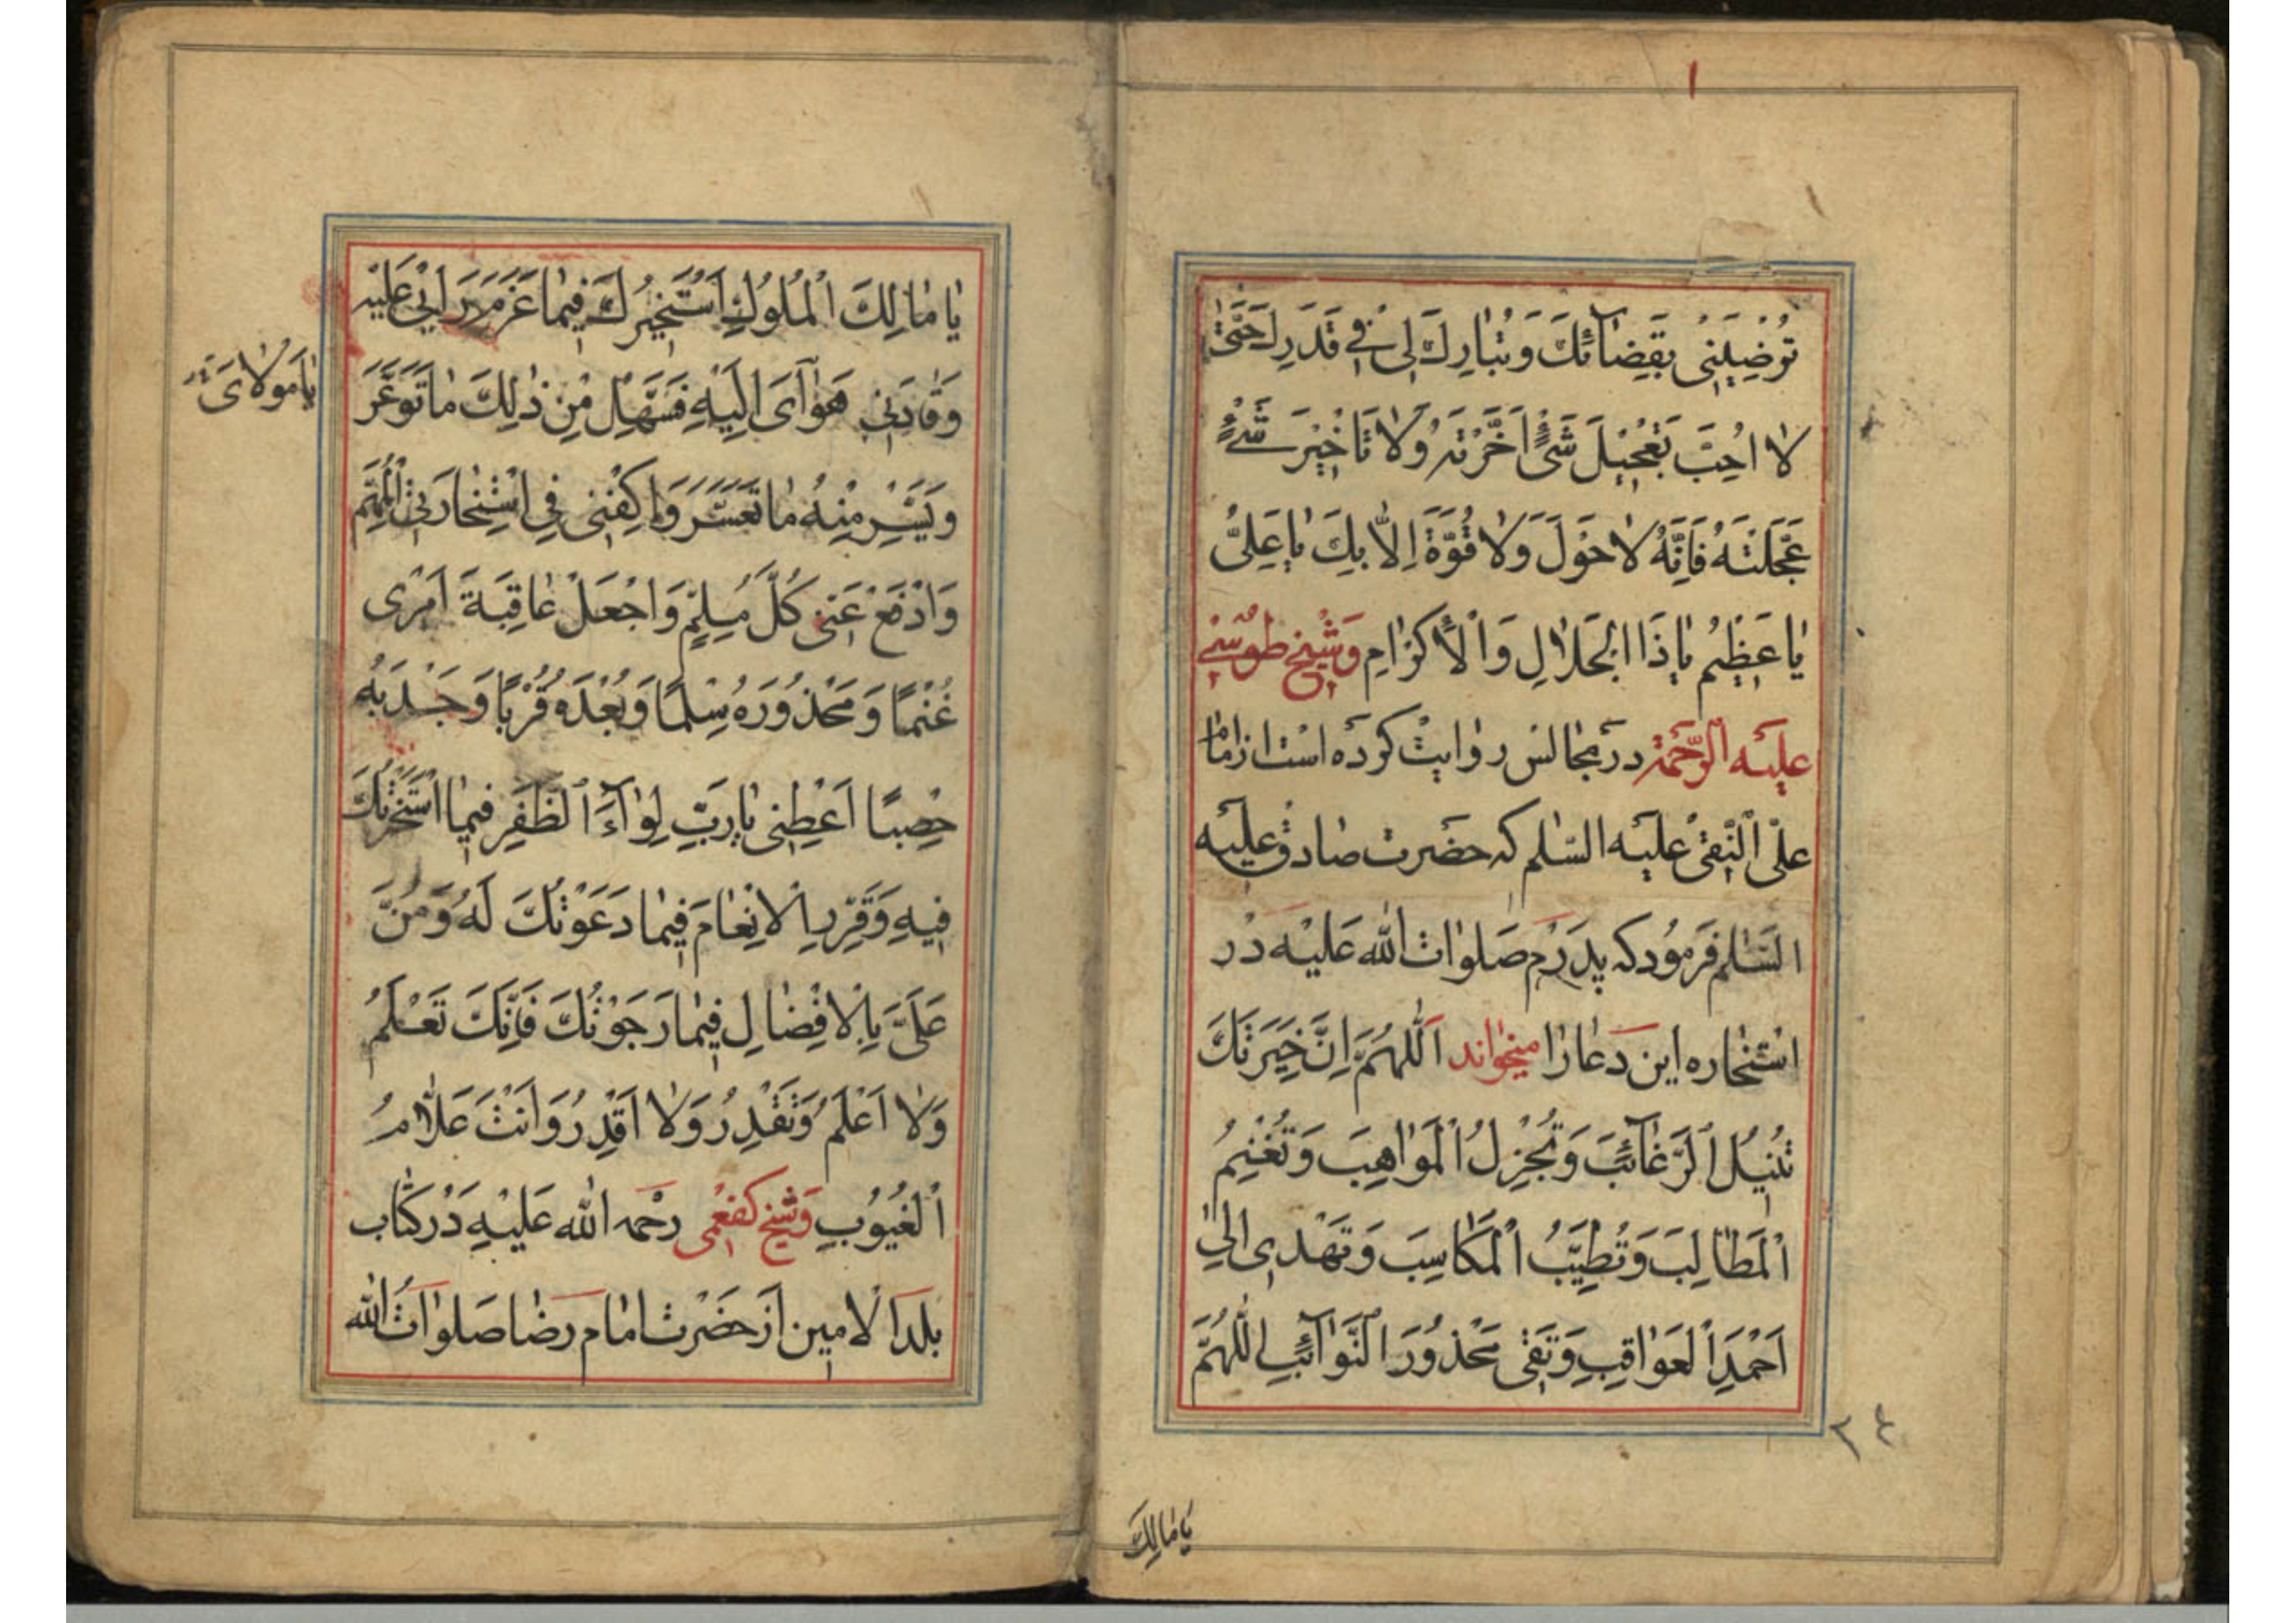 تُرْضِيَنِى بِقَضٰآئِكَ وَ تُبٰارِكَ لِى فِى قَدَرِكَ حَتّٰى
لٰا اُحِبَّ تَعْجِيلَ شَىْءٍ اَخَّرْتَهُ وَلٰا تَاْخِيْرَ شَىْءٍ
عَجَّلْتَهُ فَاِنَّهُ لٰا حَوْلَ وَلٰا قُوَّةَ اِلّٰا بِكَ يٰا عَلِىُّ
يٰا عَظِيْمُ يٰا ذَا الْجَلٰالِ وَالْاِكْرٰامِ وَشَيْخ طُوْسِىْ
عَلَيْهِ الرَّحْمَة در مجٰالس روٰايت كرده است از امٰام
علىّ النّقى عليه السّلم كه حضرت صٰادق عليه
السّلم فرمود كه پدرم صَلوٰات الله عَليْه دَرْ
استخٰاره اين دعٰا را ميخوٰاند اَللّٰهُمَّ اِنَّ خِيَرَتَكَ
تُنِيْلُ الرَّغٰآئِبَ وَ تُجْزِلُ الْمَوٰاهِبَ وَ تُغْنِمُ
الْمَطٰالِبَ وَ تُطِيِّبُ الْمَكٰاسِبَ وَ تَهْدِى اِلىٰ
اَحْمَدِ الْعَوٰاقِبِ وَ تَقِى مَحْذُورَ النَّوٰآئِبِ اللّٰهُمَّ
٢٤
يٰا مٰالِكَ
يٰا مٰالِكَ الْمُلُوْكِ اَسْتَخِيْرُكَ فِيمٰا عَزَمَ رَاْيِى عَلَيْهِ
وَقٰادَنِى هَوٰآىَ اِلَيْهِ فَسَهِّلْ مِنْ ذٰلِكَ مٰا تَوَعَّرَ
يٰا مَولٰاىَ
وَ يَسِّرْ مِنْهُ مٰا تَعَسَّرَ وَ اكْفِنِى فِى اسْتِخٰارَتِى الْمُهِمَّ
وَادْفَعْ عَنِّى كُلَّ مُلِمٍّ وَاجْعَلْ عٰاقِبَةَ اَمْرِى
غُنْمًا وَ مَحْذُورَهُ سِلْمًا وَ بُعْدَهُ قُرْبًا وَ جَدْبَهُ
خِصْبًا اَعْطِنِى يٰا رَبِّ لِوٰآءَ الظَّفَرِ فِيمٰا اسْتَخَرْتُكَ
فِيهِ وَ قَرِّرِ الْاِنْعٰامَ فِيمٰا دَعَوْتُكَ لَهُ وَ مُنَّ
عَلَىَّ بِالْاِفْضٰالِ فِيمٰا رَجَوْتُكَ فَاِنَّكَ تَعْلَمُ
وَلٰا اَعْلَمُ وَ تَقْدِرُ وَلٰا اَقْدِرُ وَ اَنْتَ عَلّٰامُ
الْغُيُوْبِ وَ شَيْخ كفعمى رحمه الله عَلَيْهِ دَرْ كتٰاب
بلد الامين از حَضْرت امٰام رضٰا صَلوٰاتُ الله